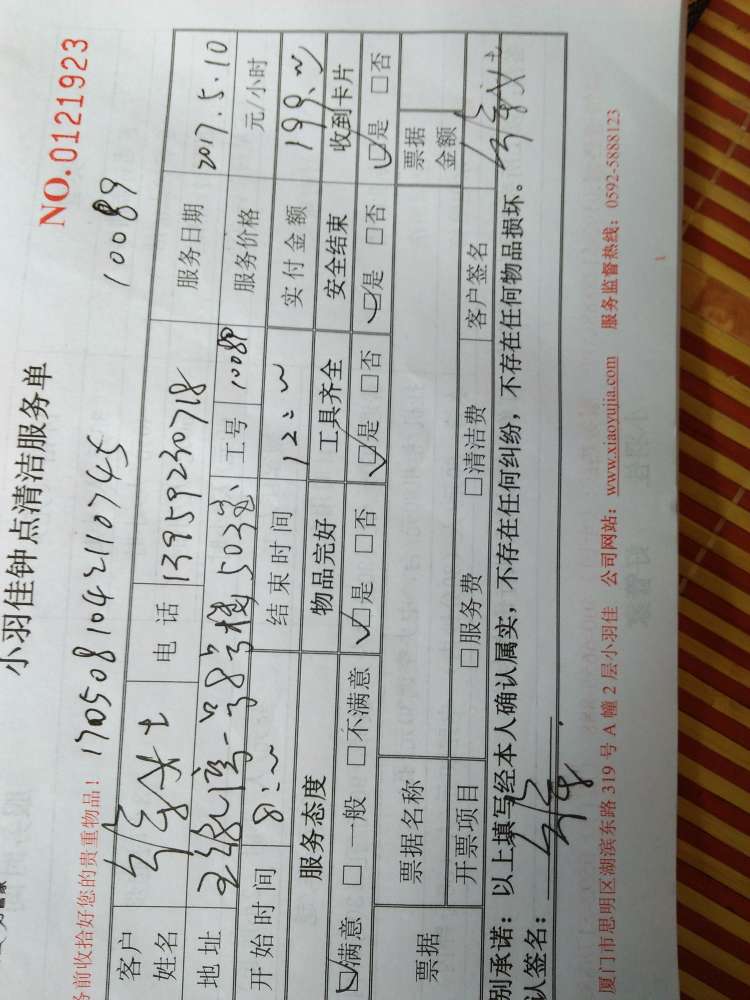 小羽佳钟点清洁服务单
NO.0121923
务前收拾好您的贵重物品! 1705081042110745 10089
客户姓名 女士 电话 13959230718 服务日期 2017.5.10
地址 五缘湾一号8号楼503室 工号 10089 服务价格 元/小时
开始时间 8:00 结束时间 12:00 实付金额 199.00
服务态度 物品完好 工具齐全 安全结束 收到卡片
☑满意 □一般 □不满意 ☑是 □否 ☑是 □否 ☑是 □否 ☑是 □否
票据 票据名称 票据金额
开票项目 □服务费 □清洁费 客户签名
别承诺：以上填写经本人确认属实，不存在任何纠纷，不存在任何物品损坏。
认签名：
厦门市思明区湖滨东路 319 号 A 幢 2 层小羽佳 公司网站：www.xiaoyujia.com 服务监督热线：0592-5888123